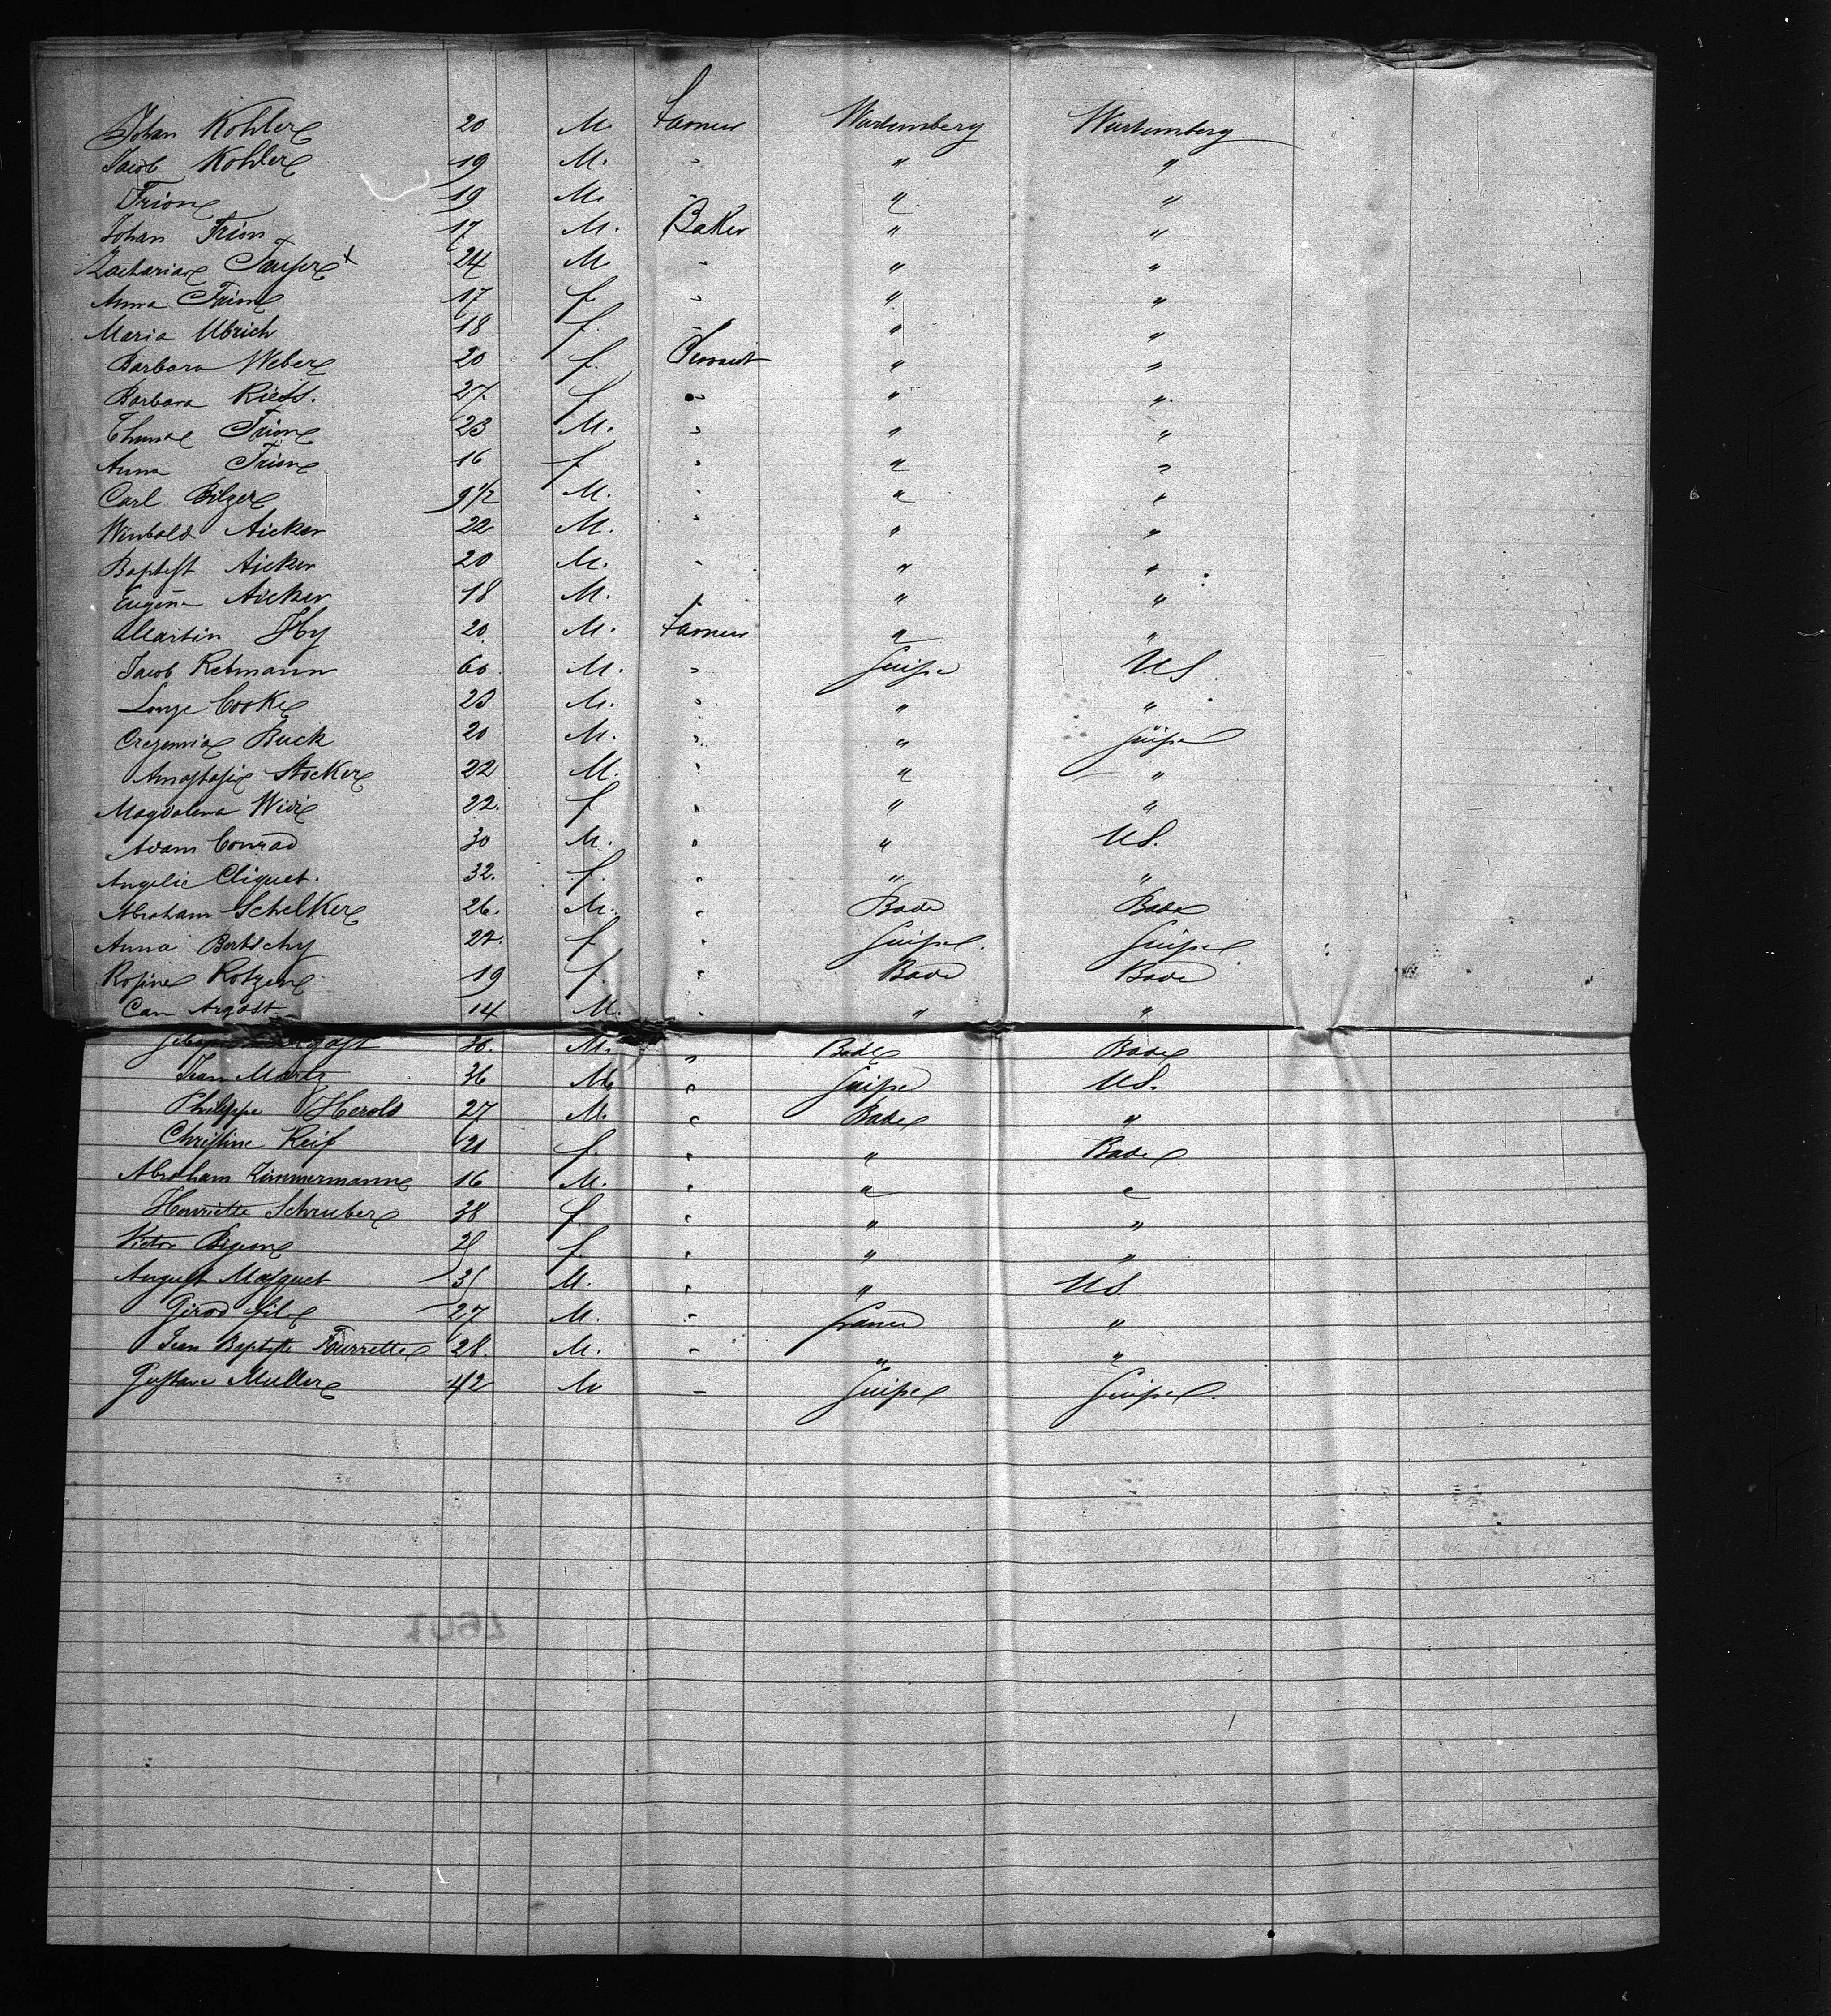 Johan Kohler 20 M. Farmer Wurtemberg Wurtemberg
Jacob Kohler 19 M. " " "
Trion 19 M. " " "
Johan Trion 17 M. Baker " "
Zacharias 24 M " " "
Anna Trion 17 f. " " "
Maria Ulrich 18 f. " " "
Barbara Weber 20 f. Servant " "
Barbara Riess. 27. f. " " "
Thomas Trion 23 M. " " "
Anna Trion 16 f. " " "
Carl Bilger 9 1/2 M. " " "
Winbold Aicker 22 M. " " "
Baptist Aicker 20 M. " " "
Eugene Aicker 18 M. " " "
Martin Hy 20. M. Farmer " "
Jacob Rebmann 60. M. " Suisse U.S.
Cooke 23 M. " " "
Buck 20 M. " " Suisse
Anastasie Stocker 22 M. " " "
Magdalena 22. f. " " "
Adam Conrad 30 M. " " U.S.
Angelie Cliquet. 32. f. " " "
Abraham Schelker 26. M. " Bade Bade
Anna Bertschy 22. f. " Suisse. Suisse
Rosine 19 f. " Bade Bade
Argast 14 M. " " "
30. M. " Bade Bade
Jean Martz 36 M. " Suisse U.S.
Philippe Herold 27 M. " Bade "
Christine Reif 21 f. " " Bade
Abraham Zimmermann 16 M. " " "
Henriette Schreuber 38 f. " " "
Victor 25 f. " " "
August Masquet 35 M. " " U.S.
Girod 27 M. " France "
Jean Baptiste Tourrette 28. M. " " "
Gustave Muller 42 M " Suisse Suisse.